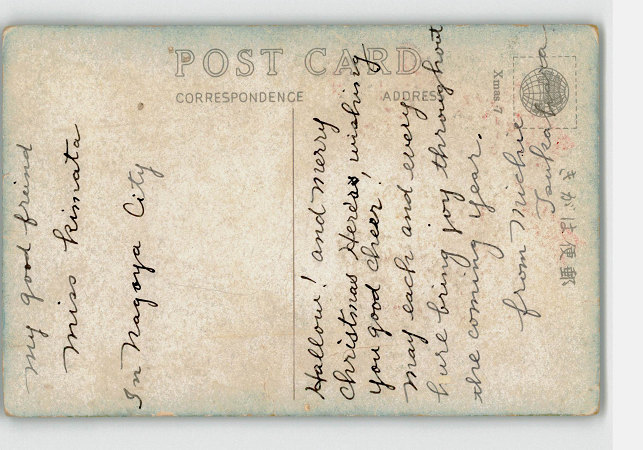 POST CARD
CORRESPONDENCE
ADDRESS
Xmas. 7
きがは便郵
My good friend
Miss Kimata
In Nagoya City
Hallow! and merry
Christmas Heres, wishing
you good cheer!
May each and every
hure bring joy throughout
the coming year.
from Michie